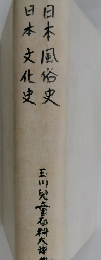 日本風俗史
日本文化史
玉川児童百科大辞典